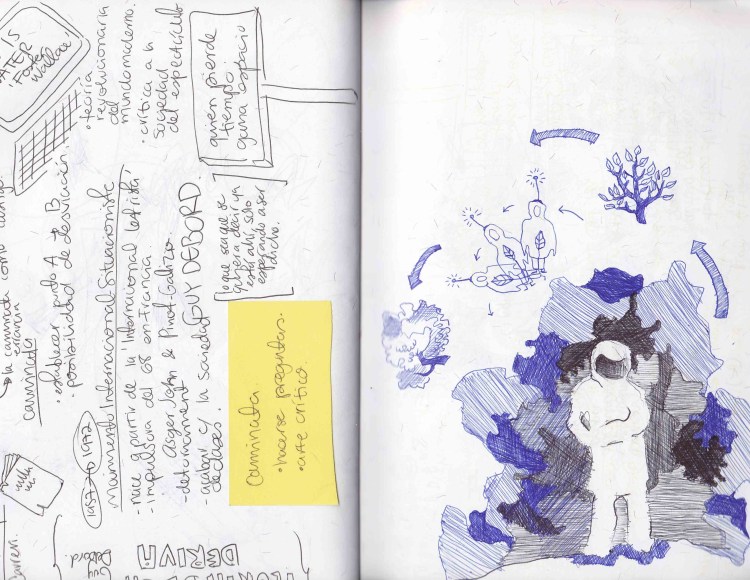 IS
WATER
Foster
Wallace
la caminata como
errancia
caminata
- establecer punto A → B
- posibilidad de desviación
1957 → 1972
Movimiento Internacional Situacioniste
- nace a partir de la 'Internacional letrista'
- impulsora del 68 en Francia.
Asger Jorn & Pinot-Galizio.
- detournement
- acabar c/ la sociedad
de clases.
GUY DEBORD
• teoría
revolucionaria
del
mundo moderno.
• crítica a la
sociedad
del espectáculo
quien pierde
tiempo
gana espacio
lo que sea que se
quiera decir ya
está ahí, solo
esperando a ser
dicho.
Caminata.
• hacerse preguntas.
• arte crítico.
Guy
Debord.
DERIVA